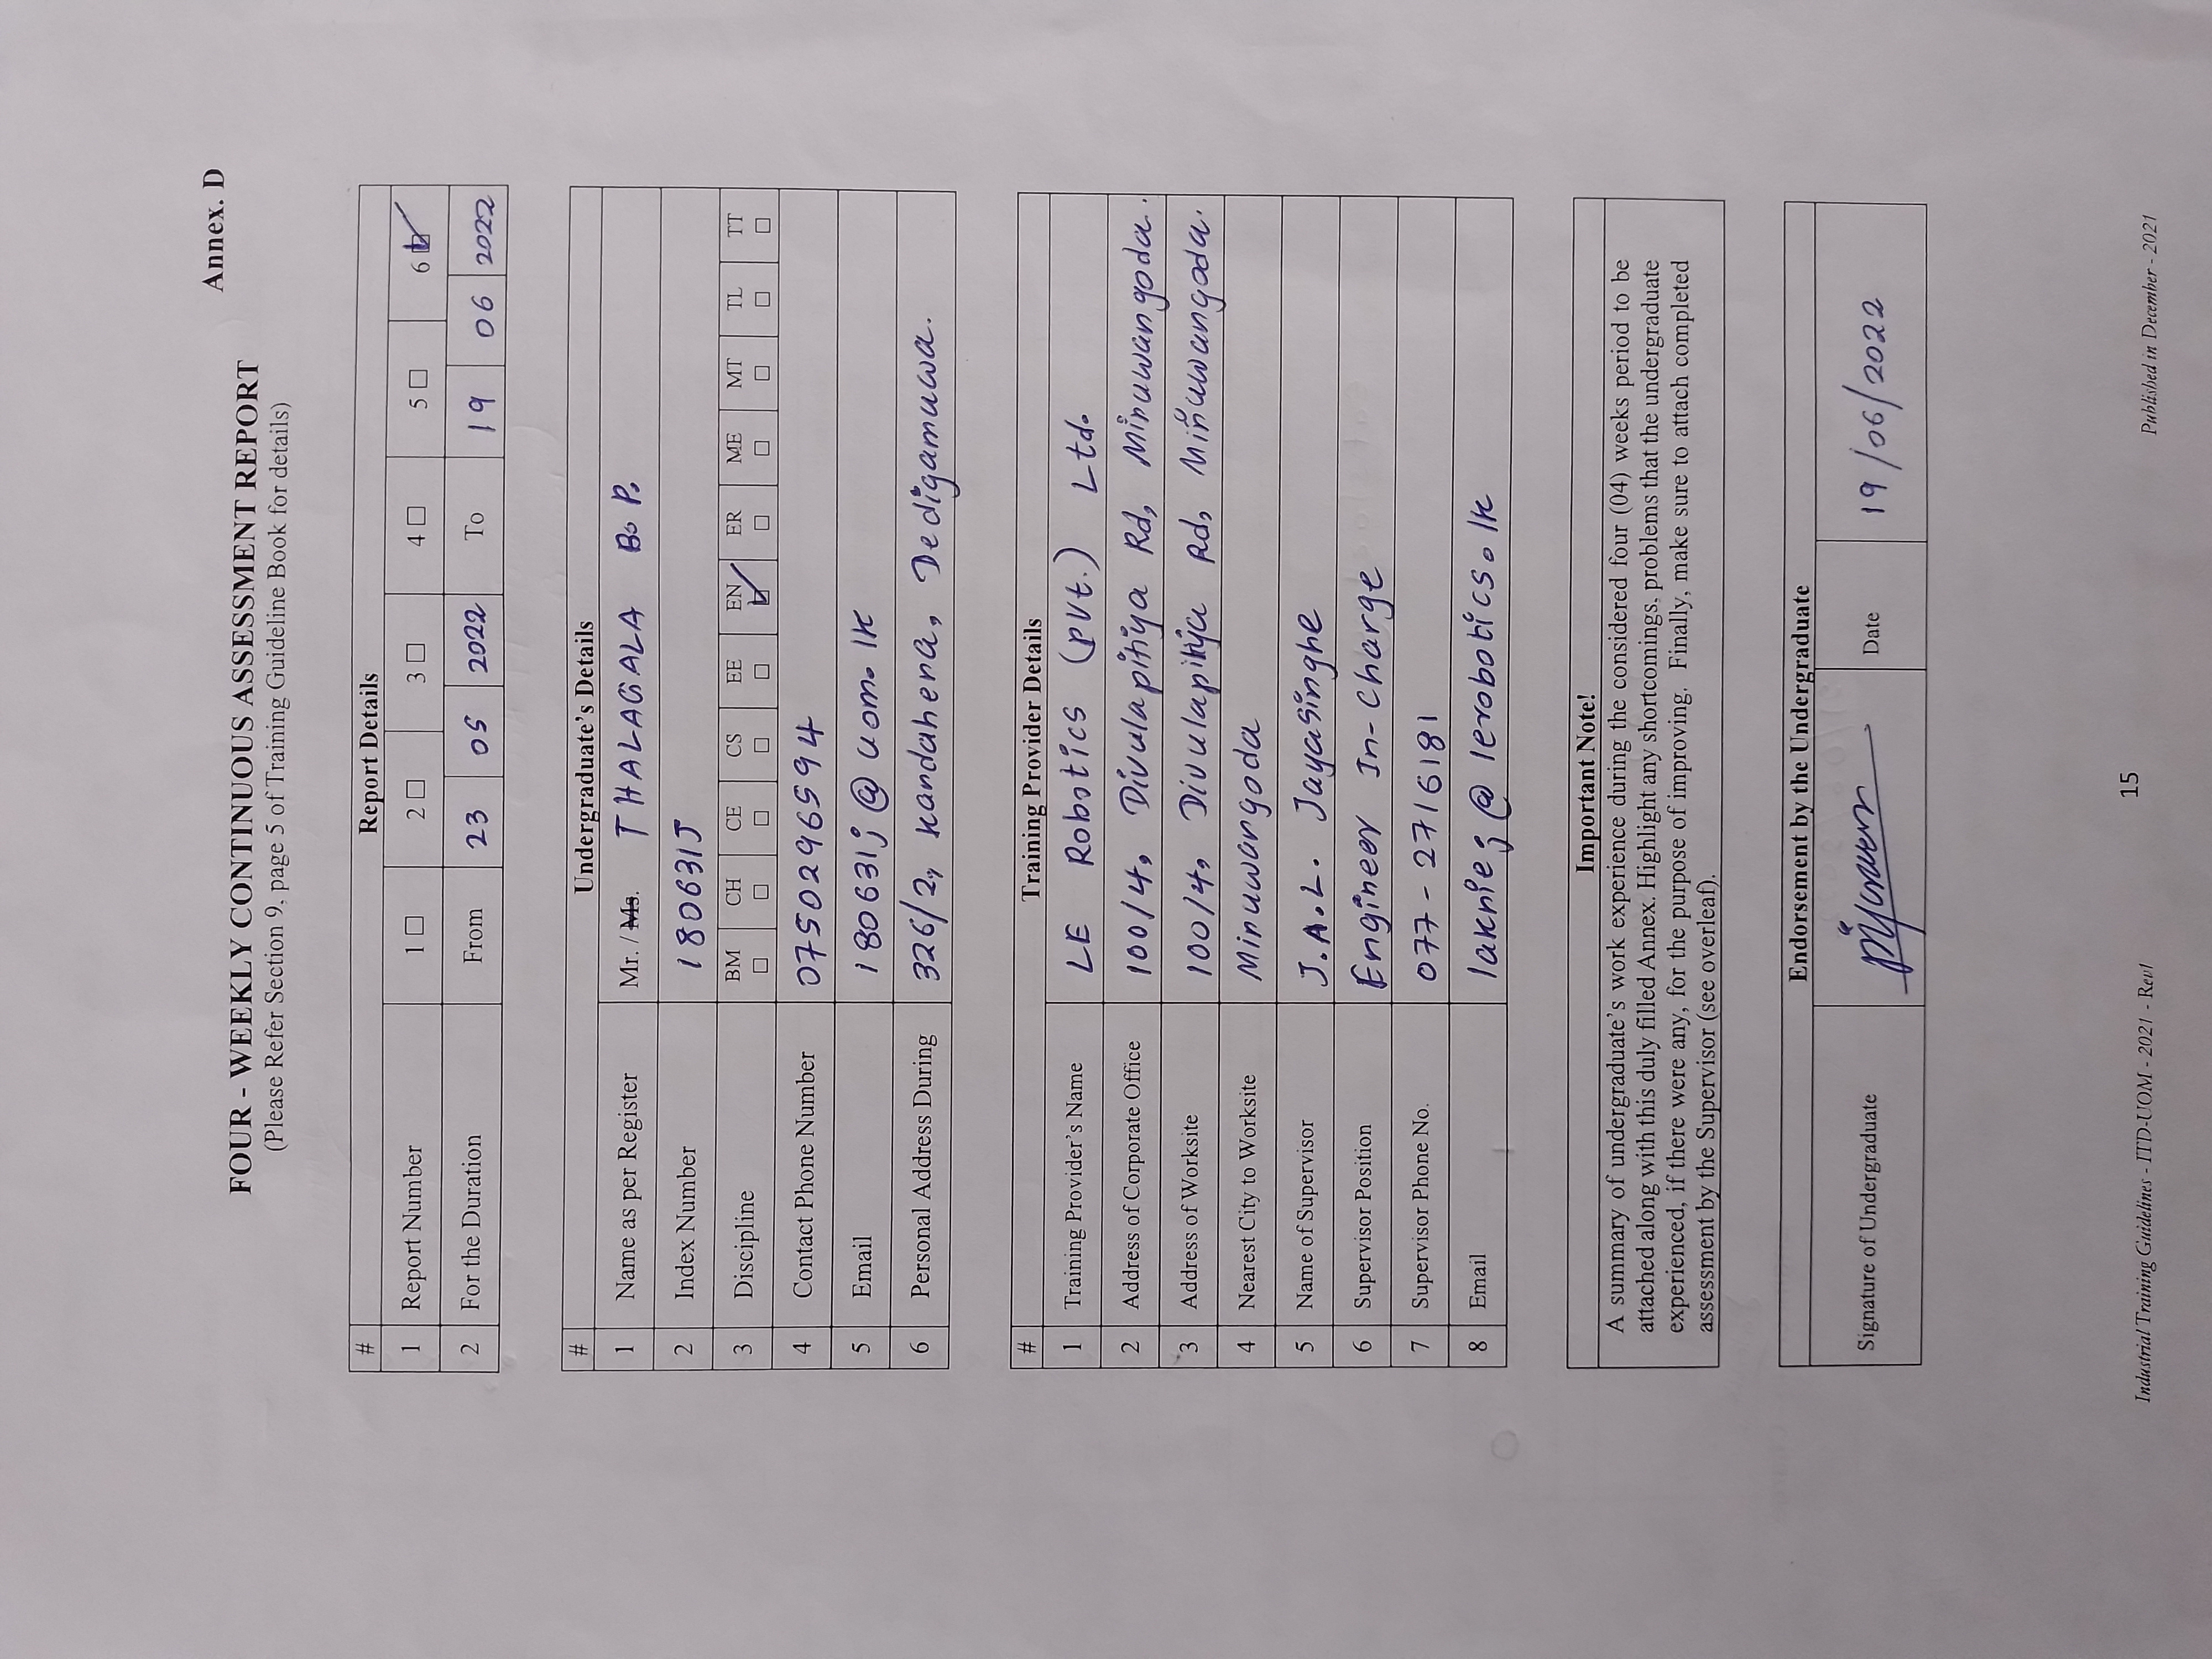 Annex. D
FOUR - WEEKLY CONTINUOUS ASSESSMENT REPORT
(Please Refer Section 9, page 5 of Training Guideline Book for details)
# Report Details
1 Report Number 1 ☐ 2 ☐ 3 ☐ 4 ☐ 5 ☐ 6 ☑
2 For the Duration From 23 05 2022 To 19 06 2022
# Undergraduate's Details
1 Name as per Register Mr. / Ms. THALAGALA B. P.
2 Index Number 180631J
3 Discipline BM ☐ CH ☐ CE ☐ CS ☐ EE ☐ EN ☑ ER ☐ ME ☐ MT ☐ TL ☐ TT ☐
4 Contact Phone Number 0750296594
5 Email 180631j@uom.lk
6 Personal Address During 326/2, Kandahena, Dedigamuwa.
# Training Provider Details
1 Training Provider's Name LE Robotics (Pvt.) Ltd.
2 Address of Corporate Office 100/4, Divulapitiya Rd, Minuwangoda.
3 Address of Worksite 100/4, Divulapitiya Rd, Minuwangoda.
4 Nearest City to Worksite Minuwangoda
5 Name of Supervisor J.A.L. Jayasinghe
6 Supervisor Position Engineer In-Charge
7 Supervisor Phone No. 077-2716181
8 Email lakniej@lerobotics.lk
Important Note!
A summary of undergraduate's work experience during the considered four (04) weeks period to be
attached along with this duly filled Annex. Highlight any shortcomings, problems that the undergraduate
experienced, if there were any, for the purpose of improving. Finally, make sure to attach completed
assessment by the Supervisor (see overleaf).
Endorsement by the Undergraduate
Signature of Undergraduate Date 19/06/2022
15
Industrial Training Guidelines - ITD-UOM - 2021 - Rev1 Published in December - 2021